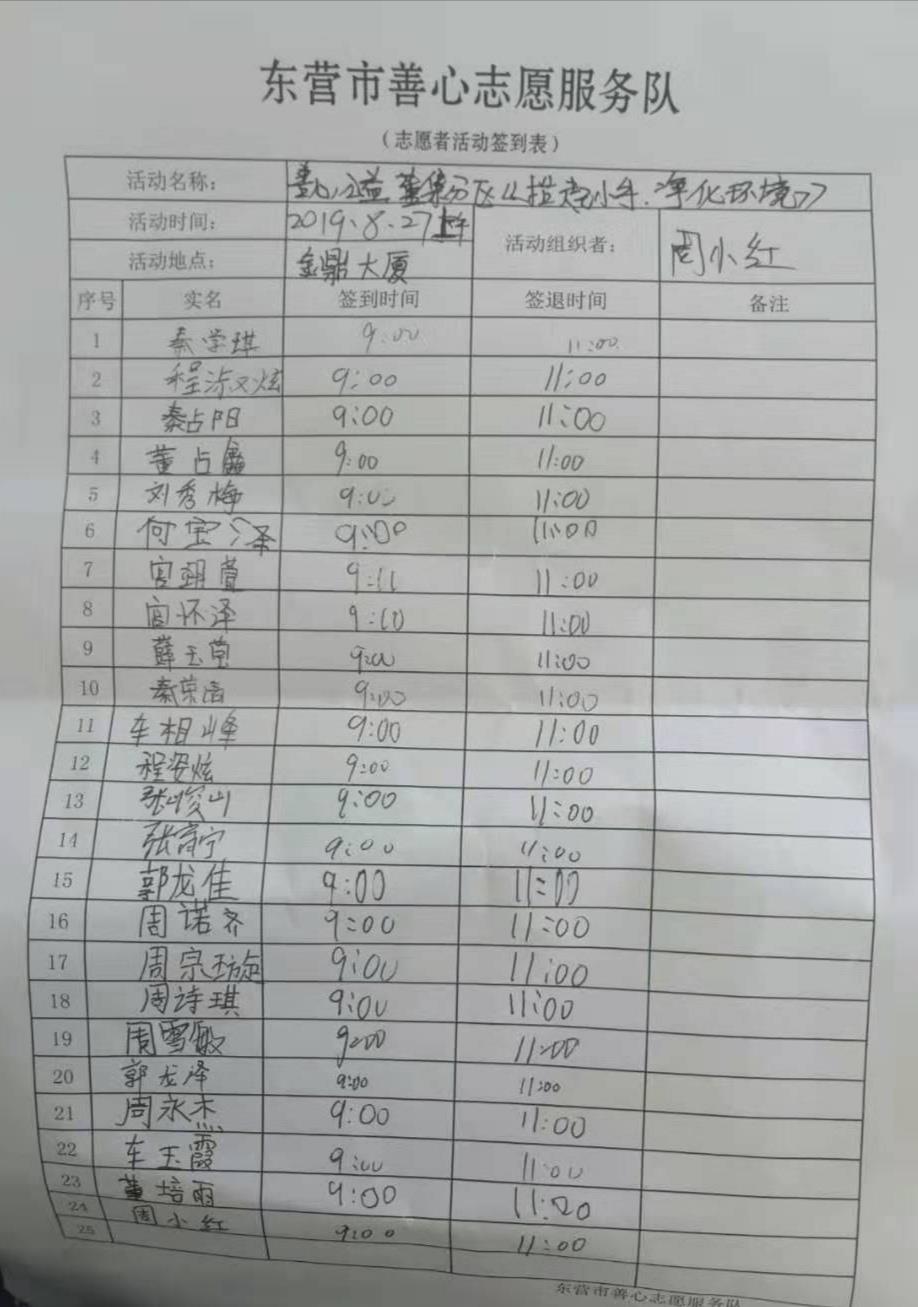 东营市善心志愿服务队
（志愿者活动签到表）
活动名称： 善心公益 分区《 小手.净化环境》
活动时间： 2019.8.27上午 活动组织者： 周小红
活动地点： 金鼎大厦
序号 实名 签到时间 签退时间 备注
1 秦学琪 9:00 11:00
2 程 炫 9:00 11:00
3 秦占阳 9:00 11:00
4 董占鑫 9:00 11:00
5 刘秀梅 9:00 11:00
6 何宝泽 9:00 11:00
7 宫翊萱 9:11 11:00
8 宫怀泽 9:10 11:00
9 薛玉 9:00 11:00
10 秦荣 9:00 11:00
11 车相峰 9:00 11:00
12 程姿炫 9:00 11:00
13 张峻山 9:00 11:00
14 张 宁 9:00 11:00
15 郭龙佳 9:00 11:00
16 周诺齐 9:00 11:00
17 周宗璇 9:00 11:00
18 周诗琪 9:00 11:00
19 周雪敏 9:00 11:00
20 郭龙泽 9:00 11:00
21 周永杰 9:00 11:00
22 车玉霞 9:00 11:00
23 董培雨 9:00 11:20
24 周小红 9:00 11:00
25
东营市善心志愿服务队